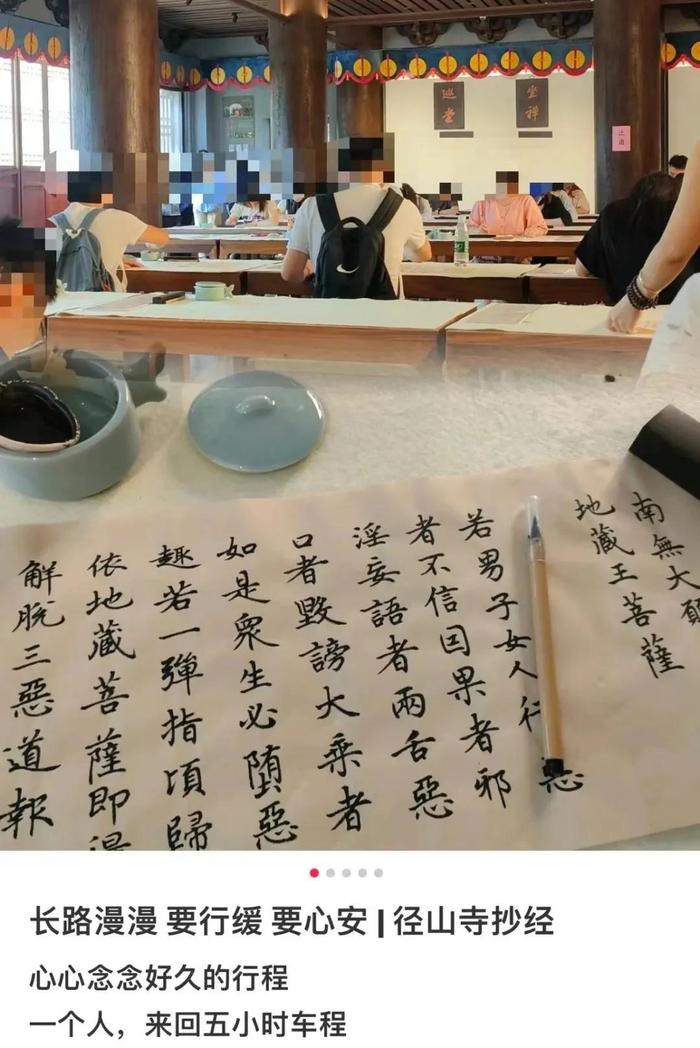 坐禪
南無大願
地藏王菩薩
若男子女人行惡
者不信因果者邪
淫妄語者兩舌惡
口者毀謗大乘者
如是衆生必堕惡
趣若一彈指頃歸
依地藏菩薩即
解脫三惡道報
长路漫漫 要行缓 要心安 | 径山寺抄经
心心念念好久的行程
一个人，来回五小时车程